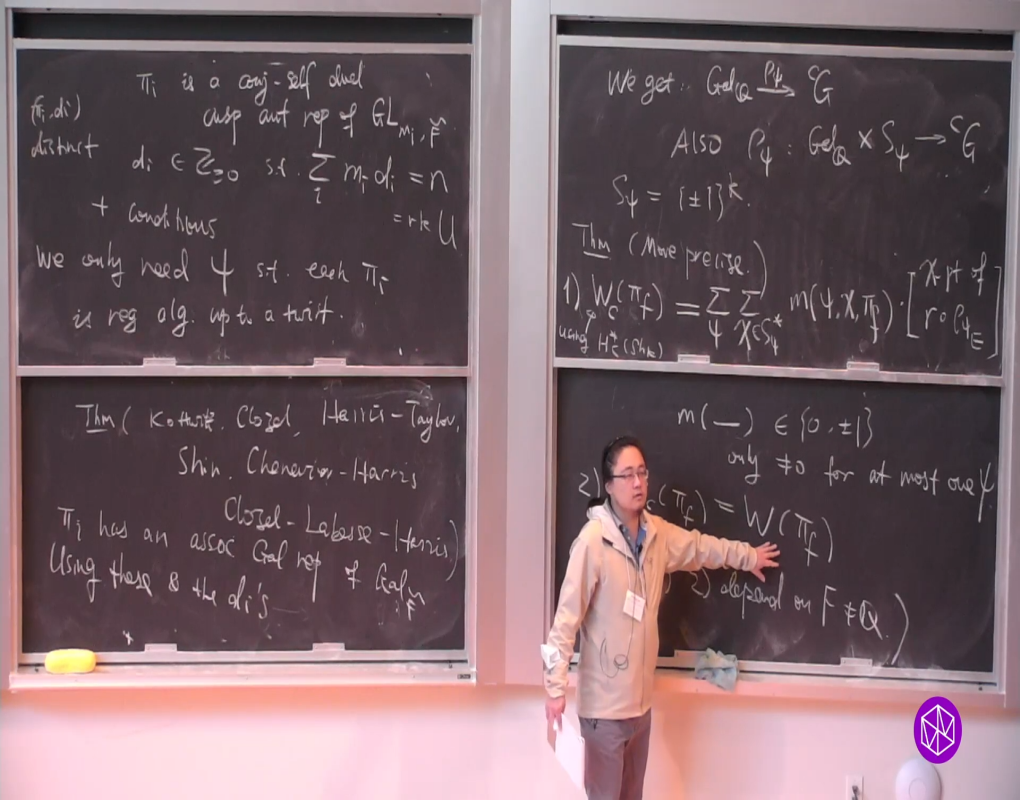 π_i is a conj-self dual
cusp aut rep of GL_{m_i, F̃}
(π_i, d_i)
distinct
d_i ∈ Z_{≥0} s.t. ∑_i m_i d_i = n
= rk U
+ conditions
We only need ψ s.t. each π_i
is reg alg. up to a twist.
Thm ( Kottwitz, Clozel, Harris-Taylor,
Shin, Chenevier-Harris
Clozel-Labesse-Harris)
π_i has an assoc Gal rep of Gal_{F̃}
Using these & the d_i's
We get: Gal_Q →^{ρ_ψ} ^cG
Also ρ_ψ : Gal_Q × S_ψ → ^cG
S_ψ = {±1}^k.
Thm (More precise.)
1) W_c(π_f) = ∑_ψ ∑_{χ∈S_ψ^*} m(ψ, χ, π_f) · [χ-pt of r∘ρ_ψ|_E]
using H_c^*(Sh_K)
m(—) ∈ {0, ±1}
only ≠0 for at most one ψ
2) (π_f) = W(π_f)
2) depend on F ≠ Q.)